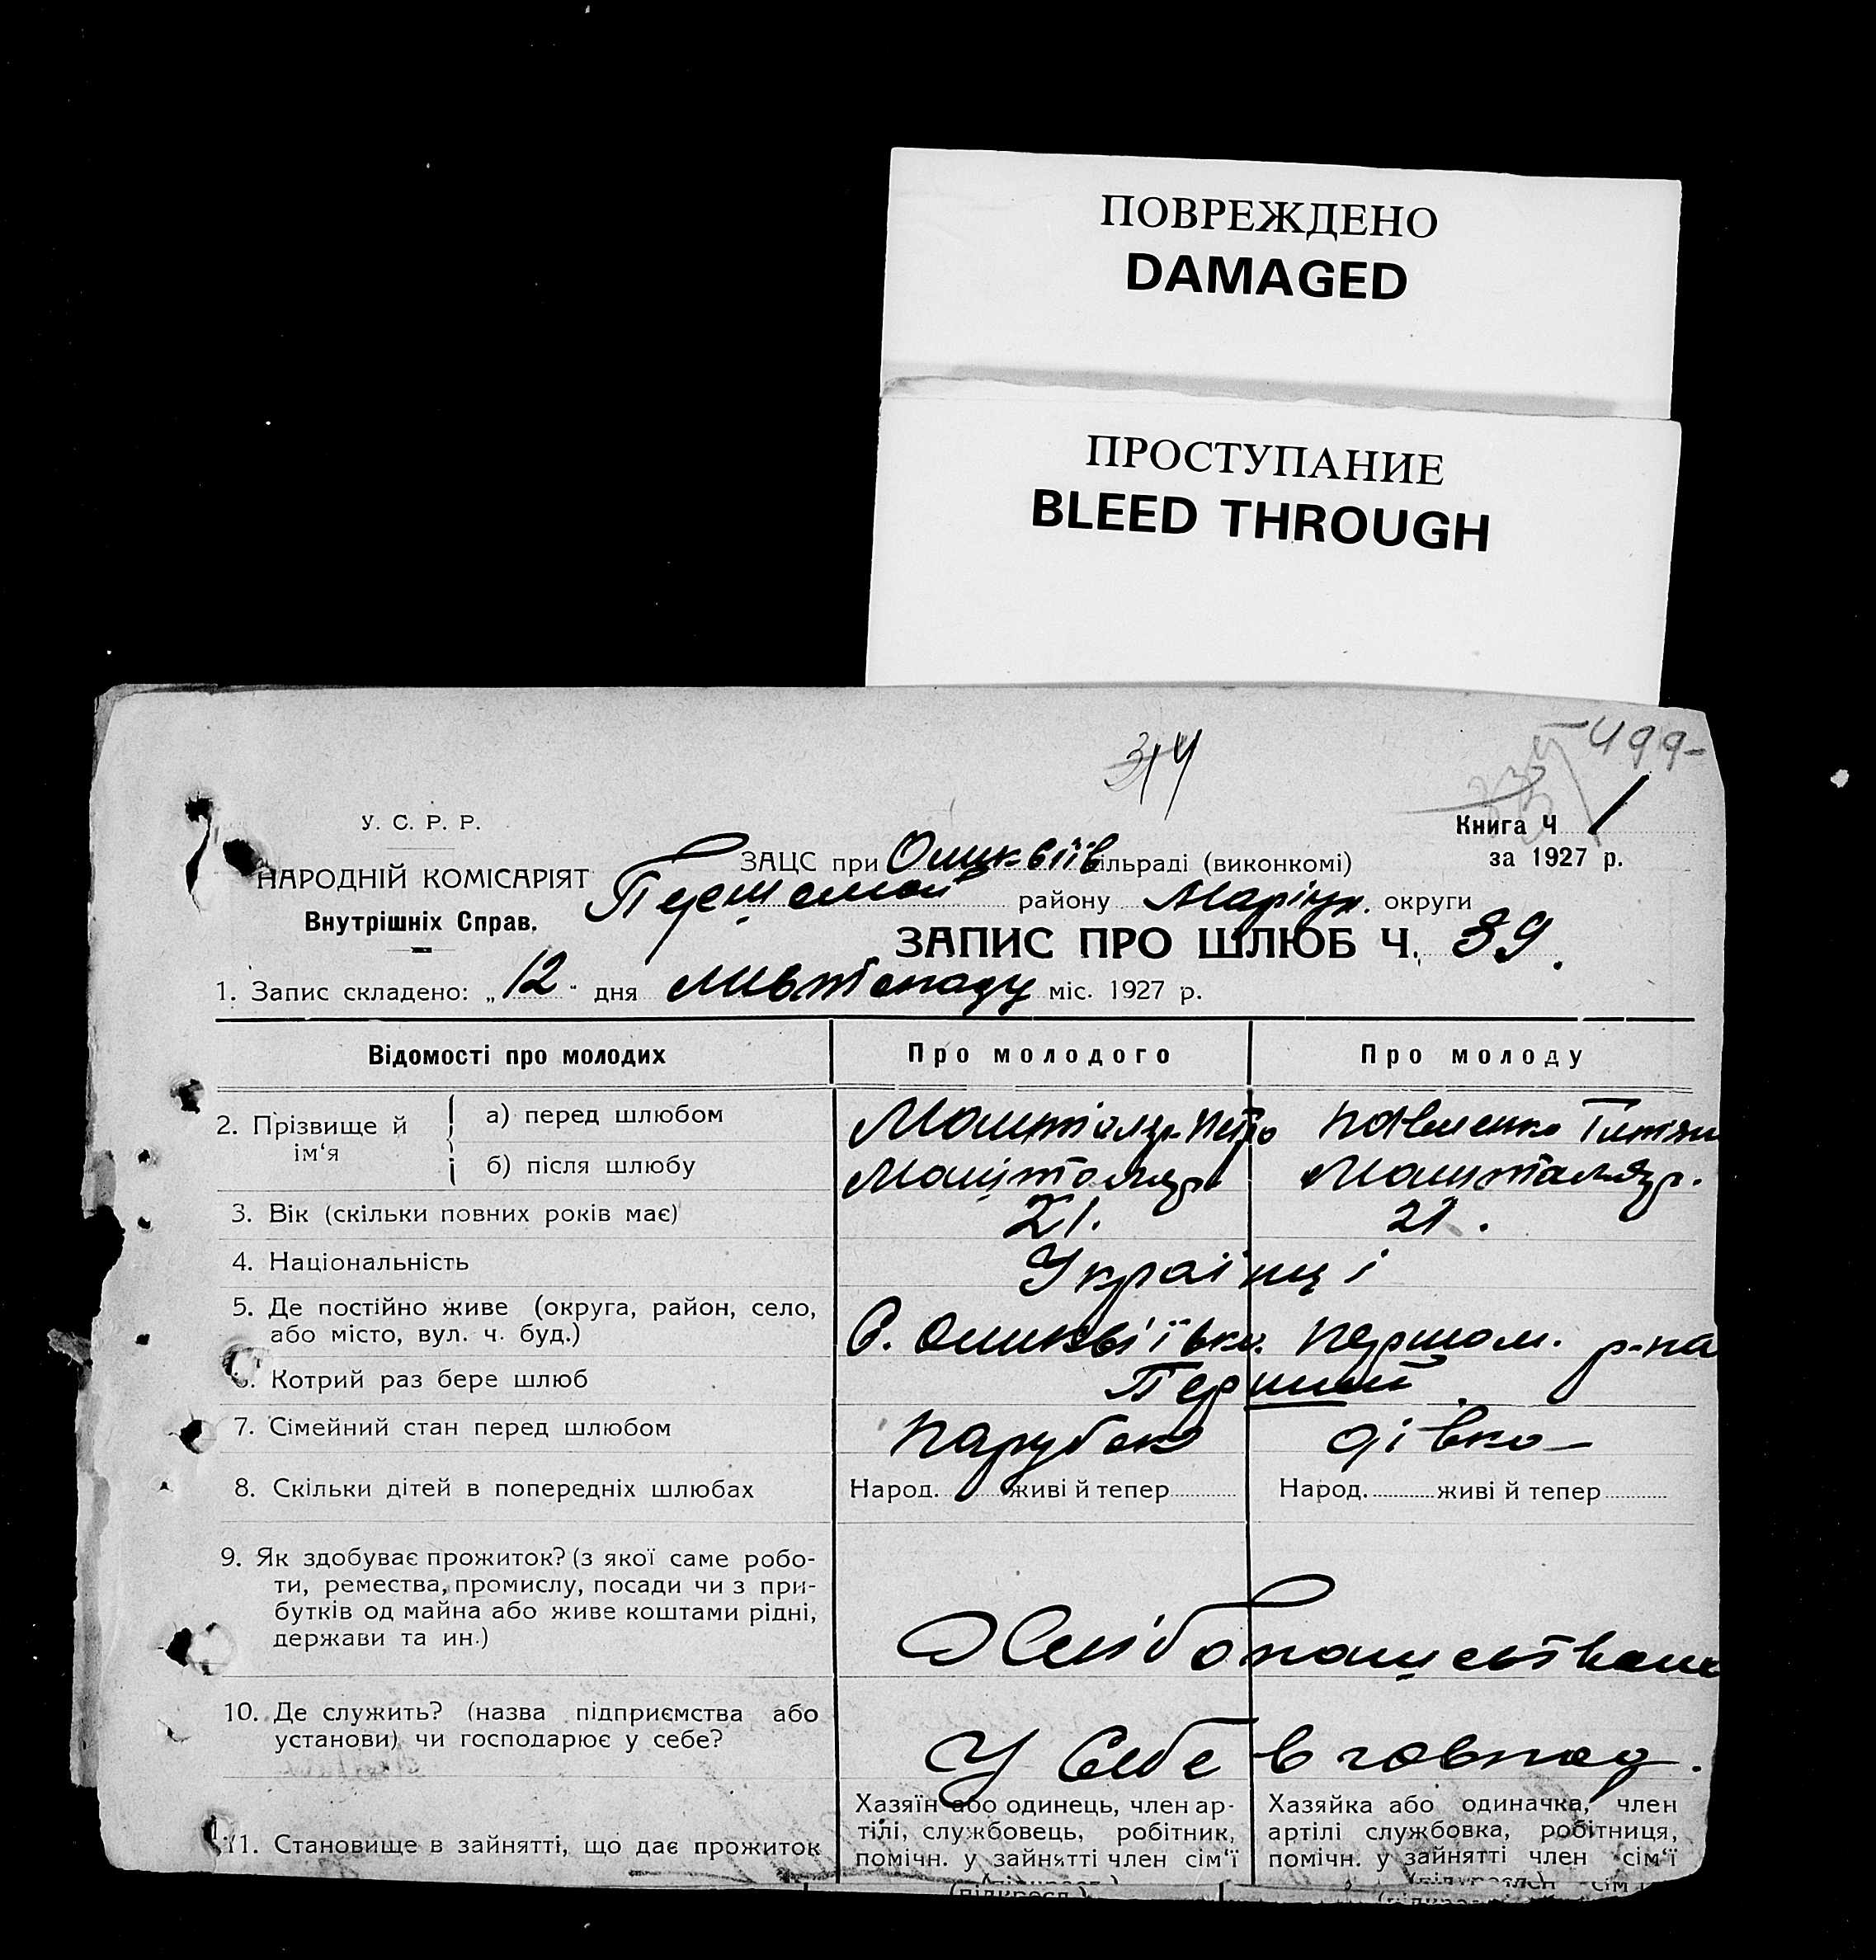 ПОВРЕЖДЕНО
DAMAGED
ПРОСТУПАНИЕ
BLEED THROUGH
314
499-
У. С. Р. Р.
НАРОДНІЙ КОМІСАРІЯТ
Внутрішніх Справ.
Книга Ч 1
за 1927 р.
ЗАЦС при сільраді (виконкомі)
району Маріуп. округи
ЗАПИС ПРО ШЛЮБ Ч. 39.
1. Запис складено: „12" дня листопаду міс. 1927 р.
Відомості про молодих Про молодого Про молоду
2. Прізвище й ім‘я
а) перед шлюбом Машталяр Петро Павленко
б) після шлюбу Машталяр Машталяр.
3. Вік (скільки повних років має) 21. 21.
4. Національність Українці
5. Де постійно живе (округа, район, село,
або місто, вул. ч. буд.) С. Першом. р-на
6. Котрий раз бере шлюб Перший
7. Сімейний стан перед шлюбом парубок дівка
8. Скільки дітей в попередніх шлюбах Народ. живі й тепер Народ. живі й тепер
9. Як здобуває прожиток? (з якої саме робо-
ти, ремества, промислу, посади чи з при-
бутків од майна або живе коштами рідні,
держави та ин.)
10. Де служить? (назва підприємства або
установи) чи господарює у себе? У себе в господ.
11. Становище в зайнятті, що дає прожиток
Хазяїн або одинець, член ар-
тілі, службовець, робітник,
помічн. у зайнятті член сім‘ї
(підкресл.)
Хазяйка або одиначка, член
артілі службовка, робітниця,
помічн. у зайнятті член сім‘ї